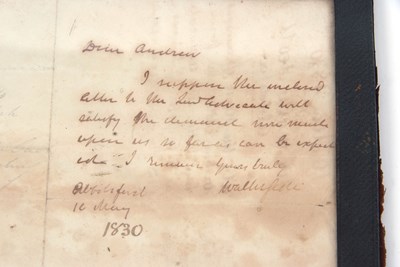 Dear Andrew
I suppose the inclosed
letter to the Lord Advocate will
satisfy the demand now made
upon us so far as can be expect
ed. I remain Yours truly
Abbotsford Walter Scott
10 May
1830